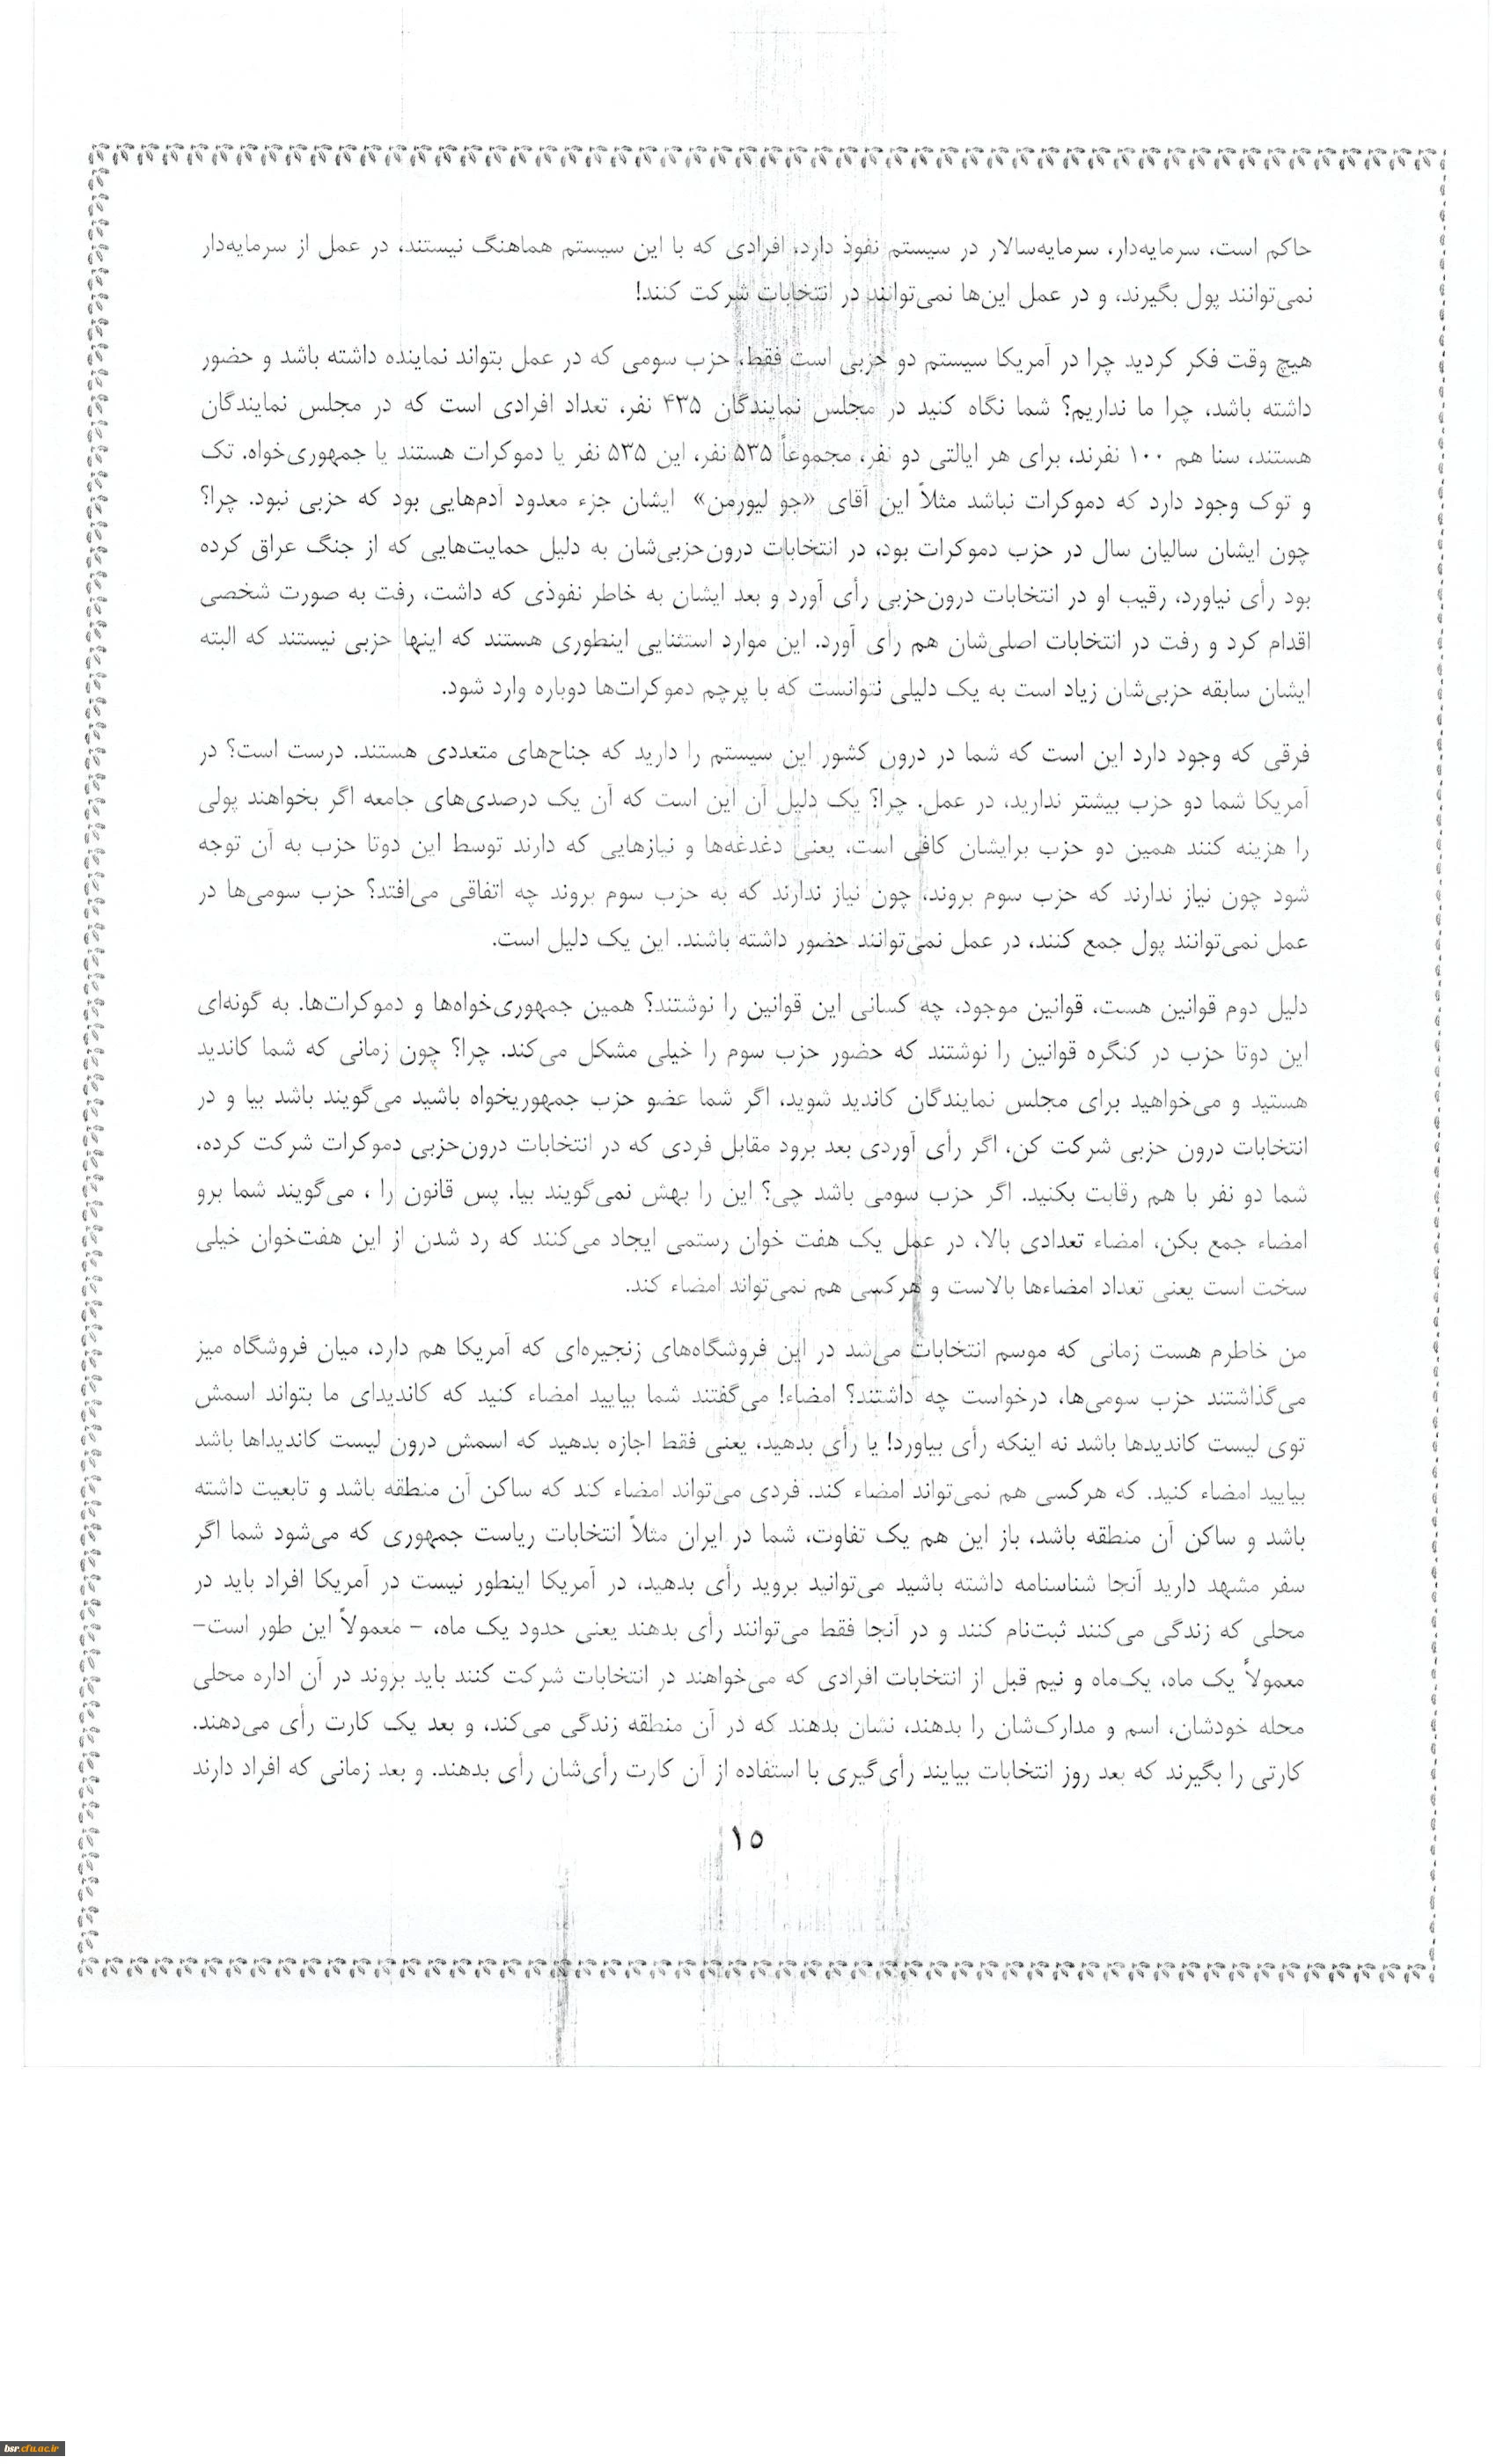 حاکم است، سرمایه‌دار، سرمایه‌سالار در سیستم نفوذ دارد، افرادی که با این سیستم هماهنگ نیستند، در عمل از سرمایه‌دار
نمی‌توانند پول بگیرند، و در عمل این‌ها نمی‌توانند در انتخابات شرکت کنند!
هیچ وقت فکر کردید چرا در آمریکا سیستم دو حزبی است فقط، حزب سومی که در عمل بتواند نماینده داشته باشد و حضور
داشته باشد، چرا ما نداریم؟ شما نگاه کنید در مجلس نمایندگان ۴۳۵ نفر، تعداد افرادی است که در مجلس نمایندگان
هستند، سنا هم ۱۰۰ نفرند، برای هر ایالتی دو نفر، مجموعاً ۵۳۵ نفر، این ۵۳۵ نفر یا دموکرات هستند یا جمهوری‌خواه. تک
و توک وجود دارد که دموکرات نباشد مثلاً این آقای «جو لیورمن» ایشان جزء معدود آدم‌هایی بود که حزبی نبود. چرا؟
چون ایشان سالیان سال در حزب دموکرات بود، در انتخابات درون‌حزبی‌شان به دلیل حمایت‌هایی که از جنگ عراق کرده
بود رأی نیاورد، رقیب او در انتخابات درون‌حزبی رأی آورد و بعد ایشان به خاطر نفوذی که داشت، رفت به صورت شخصی
اقدام کرد و رفت در انتخابات اصلی‌شان هم رأی آورد. این موارد استثنایی اینطوری هستند که اینها حزبی نیستند که البته
ایشان سابقه حزبی‌شان زیاد است به یک دلیلی نتوانست که با پرچم دموکرات‌ها دوباره وارد شود.
فرقی که وجود دارد این است که شما در درون کشور این سیستم را دارید که جناح‌های متعددی هستند. درست است؟ در
آمریکا شما دو حزب بیشتر ندارید، در عمل. چرا؟ یک دلیل آن این است که آن یک درصدی‌های جامعه اگر بخواهند پولی
را هزینه کنند همین دو حزب برایشان کافی است، یعنی دغدغه‌ها و نیازهایی که دارند توسط این دوتا حزب به آن توجه
شود چون نیاز ندارند که حزب سوم بروند، چون نیاز ندارند که به حزب سوم بروند چه اتفاقی می‌افتد؟ حزب سومی‌ها در
عمل نمی‌توانند پول جمع کنند، در عمل نمی‌توانند حضور داشته باشند. این یک دلیل است.
دلیل دوم قوانین هست، قوانین موجود، چه کسانی این قوانین را نوشتند؟ همین جمهوری‌خواه‌ها و دموکرات‌ها. به گونه‌ای
این دوتا حزب در کنگره قوانین را نوشتند که حضور حزب سوم را خیلی مشکل می‌کند. چرا؟ چون زمانی که شما کاندید
هستید و می‌خواهید برای مجلس نمایندگان کاندید شوید، اگر شما عضو حزب جمهوریخواه باشید می‌گویند باشد بیا و در
انتخابات درون حزبی شرکت کن، اگر رأی آوردی بعد برود مقابل فردی که در انتخابات درون‌حزبی دموکرات شرکت کرده،
شما دو نفر با هم رقابت بکنید. اگر حزب سومی باشد چی؟ این را بهش نمی‌گویند بیا. پس قانون را ، می‌گویند شما برو
امضاء جمع بکن، امضاء تعدادی بالا، در عمل یک هفت خوان رستمی ایجاد می‌کنند که رد شدن از این هفت‌خوان خیلی
سخت است یعنی تعداد امضاءها بالاست و هرکسی هم نمی‌تواند امضاء کند.
من خاطرم هست زمانی که موسم انتخابات می‌شد در این فروشگاه‌های زنجیره‌ای که آمریکا هم دارد، میان فروشگاه میز
می‌گذاشتند حزب سومی‌ها، درخواست چه داشتند؟ امضاء! می‌گفتند شما بیایید امضاء کنید که کاندیدای ما بتواند اسمش
توی لیست کاندیدها باشد نه اینکه رأی بیاورد! یا رأی بدهید، یعنی فقط اجازه بدهید که اسمش درون لیست کاندیداها باشد
بیایید امضاء کنید. که هرکسی هم نمی‌تواند امضاء کند. فردی می‌تواند امضاء کند که ساکن آن منطقه باشد و تابعیت داشته
باشد و ساکن آن منطقه باشد، باز این هم یک تفاوت، شما در ایران مثلاً انتخابات ریاست جمهوری که می‌شود شما اگر
سفر مشهد دارید آنجا شناسنامه داشته باشید می‌توانید بروید رأی بدهید، در آمریکا اینطور نیست در آمریکا افراد باید در
محلی که زندگی می‌کنند ثبت‌نام کنند و در آنجا فقط می‌توانند رأی بدهند یعنی حدود یک ماه، - معمولاً این طور است-
معمولاً یک ماه، یک‌ماه و نیم قبل از انتخابات افرادی که می‌خواهند در انتخابات شرکت کنند باید بروند در آن اداره محلی
محله خودشان، اسم و مدارک‌شان را بدهند، نشان بدهند که در آن منطقه زندگی می‌کند، و بعد یک کارت رأی می‌دهند.
کارتی را بگیرند که بعد روز انتخابات بیایند رأی‌گیری با استفاده از آن کارت رأی‌شان رأی بدهند. و بعد زمانی که افراد دارند
۱۵
bsr.cfu.ac.ir